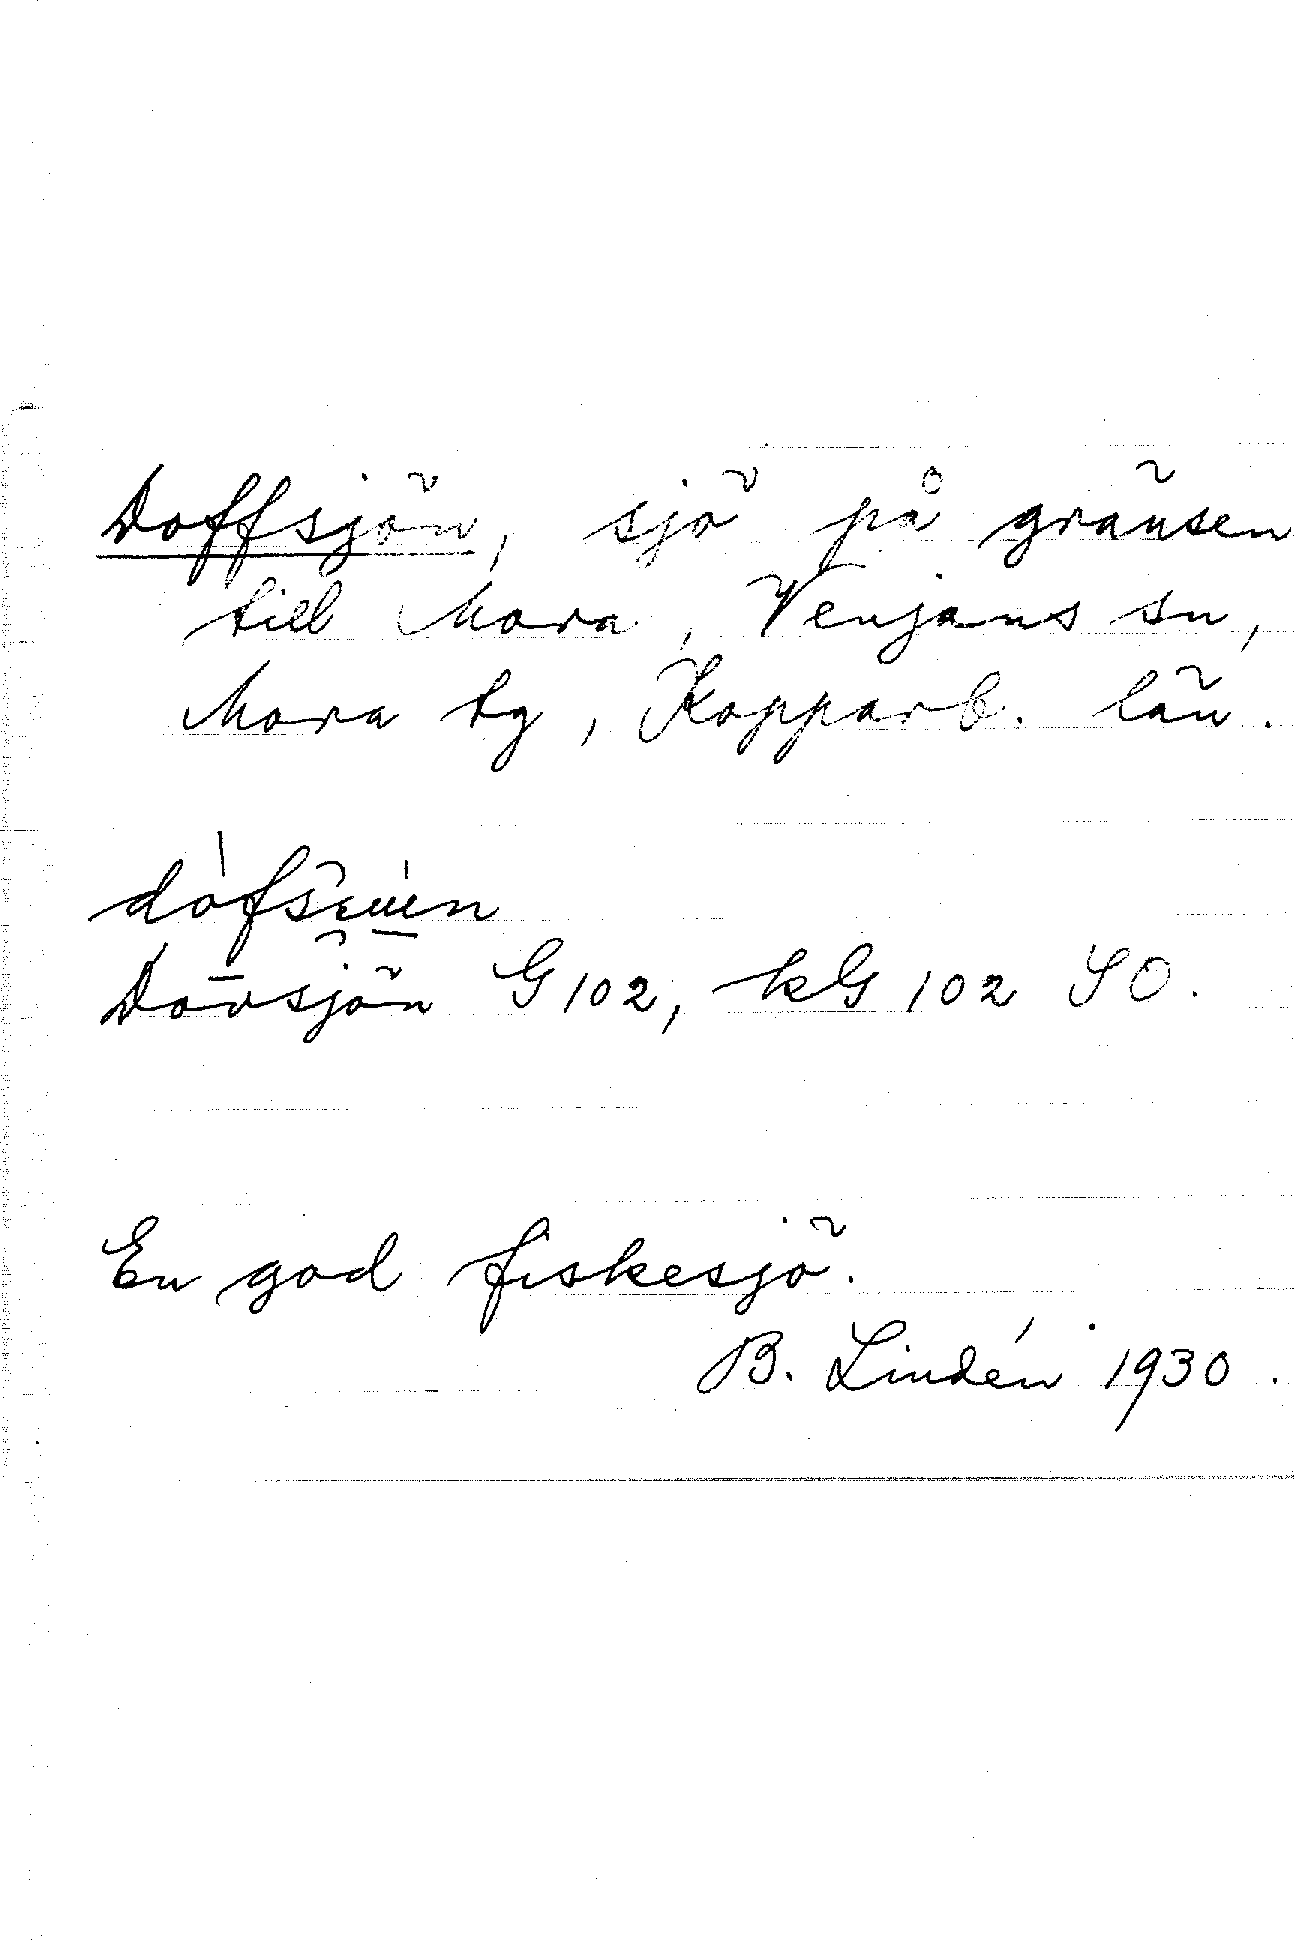 Doffsjön, sjö på gränsen
till Mora, Venjans sn,
Mora tg, Kopparb. län.
Dovsjön G 102, kG 102 SO.
En god fiskesjö.
B. Lindén 1930.